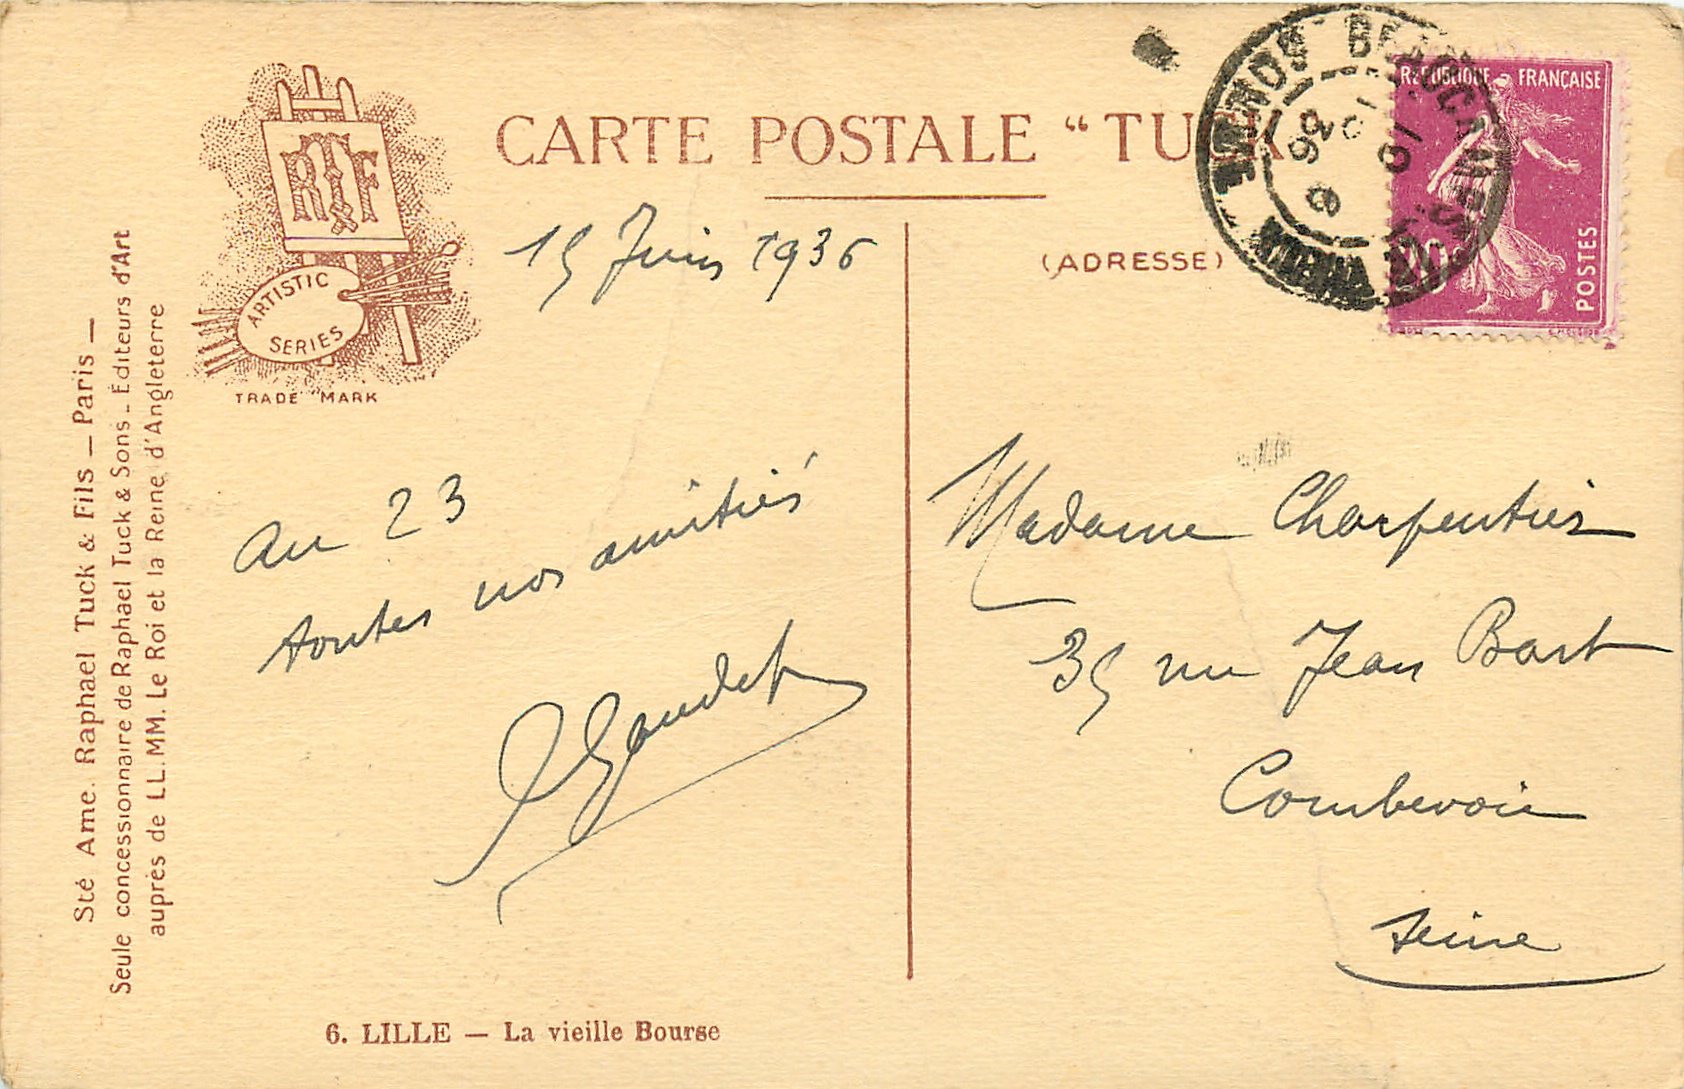 CARTE POSTALE "TUCK
RTF
&
ARTISTIC
SERIES
TRADE MARK
Sté Ame. Raphael Tuck & Fils — Paris —
Seule concessionnaire de Raphael Tuck & Sons - Éditeurs d'Art
auprès de LL. MM. Le Roi et la Reine d'Angleterre
15 Juin 1936
Au 23
toutes nos amitiés
Gaudet
6. LILLE — La vieille Bourse
(ADRESSE)
RÉPUBLIQUE FRANÇAISE
POSTES
Madame Charpentier
35 rue Jean Bart
Courbevoie
Seine